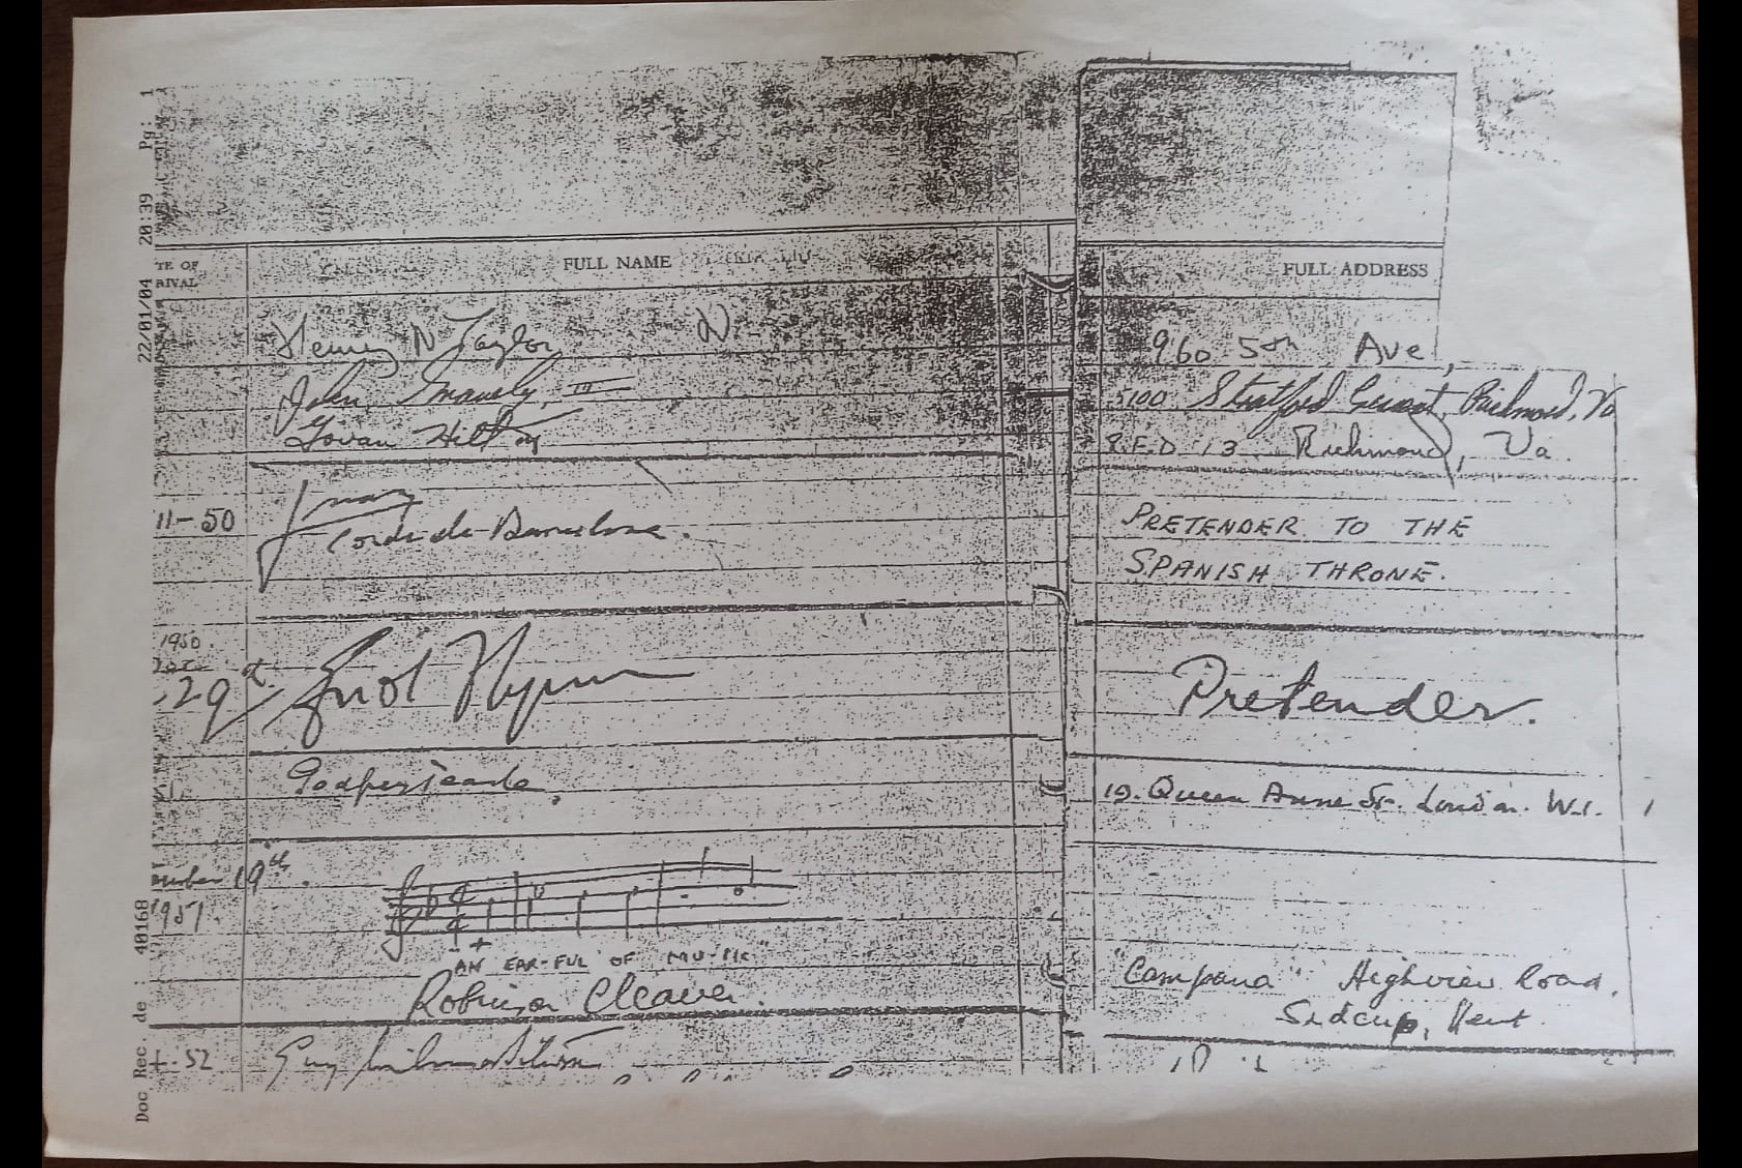 22/01/04 20:39 Pg: 1
Doc Rec. de : 40168
TE OF
RIVAL
FULL NAME
FULL ADDRESS
Henry N Taylor
960 5th Ave,
John III
5100 Stratford Richmond, Va
Govan Hill
R.F.D 13 Richmond, Va.
11-50
Juan
Conde de Barcelona.
PRETENDER TO THE
SPANISH THRONE.
1950.
29th
Errol Flynn
Pretender.
19. Queen Anne St. London. W.1.
19th.
1951.
AN EAR-FUL OF MU-SIC
Robinson Cleaver.
"Campana" Highview Road,
Sidcup, Kent.
52
Guy